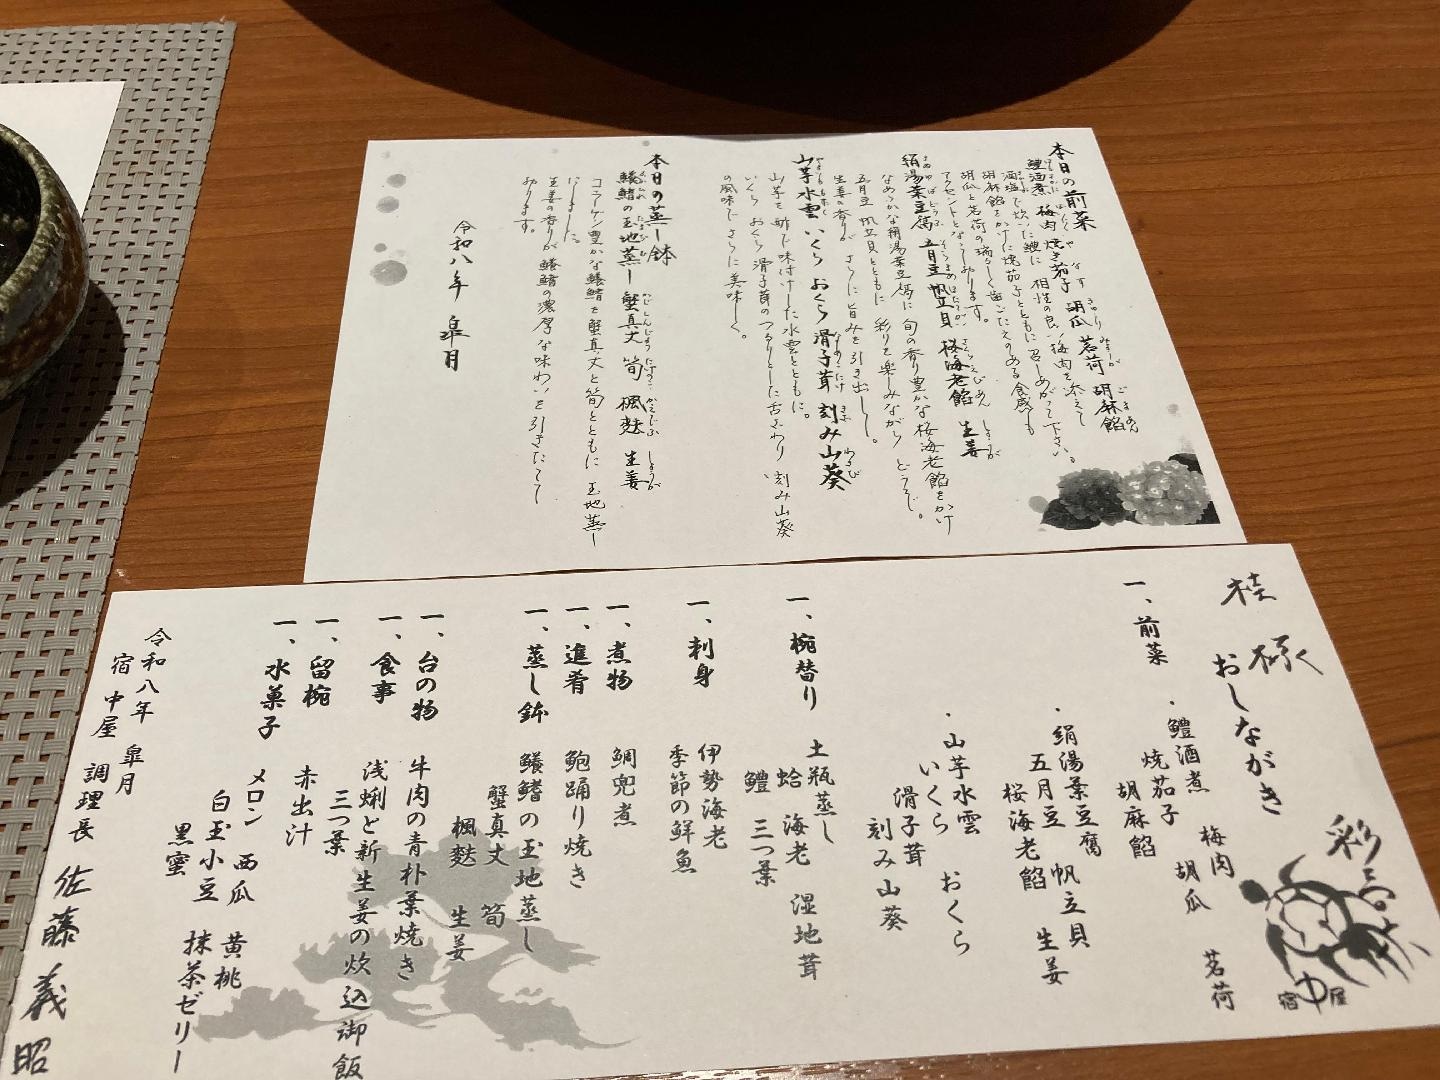 本日の前菜
鱧酒煮 梅肉 焼き茄子 胡瓜 茗荷 胡麻餡
酒塩で炊いた鱧に 相性の良い梅肉を添えて
胡麻餡をかけた焼茄子とともに召しあがって下さい。
胡瓜と茗荷の瑞々しく歯ごたえのある食感も
アクセントとなっております。
絹湯葉豆腐 五月豆 帆立貝 桜海老餡 生姜
なめらかな絹湯葉豆腐に旬の香り豊かな桜海老餡をかけ
五月豆 帆立貝とともに 彩りを楽しみながら どうぞ。
生姜の香りが さらに旨みを引き出し。
山芋水雲 いくら おくら 滑子茸 刻み山葵
山芋を酢で味付けした水雲とともに。
いくら おくら 滑子茸のつるりとした舌ざわり 刻み山葵
の風味でさらに美味しく。
本日の蒸し鉢
鱶鰭の玉地蒸し 蟹真丈 筍 楓麩 生姜
コラーゲン豊かな鱶鰭を蟹真丈と筍とともに 玉地蒸し
にしました。
生姜の香りが鱶鰭の濃厚な味わいを引きたてて
おります。
令和八年 皐月
桂 様
おしながき
彩
宿 中屋
一、前菜
・鱧酒煮 梅肉 茗荷
焼茄子 胡瓜
胡麻餡
・絹湯葉豆腐 帆立貝
五月豆 生姜
桜海老餡
・山芋水雲 おくら
いくら
滑子茸
刻み山葵
一、椀替り 土瓶蒸し
蛤 海老 湿地茸
鱧 三つ葉
一、刺身 伊勢海老
季節の鮮魚
一、煮物 鯛兜煮
一、進肴 鮑踊り焼き
一、蒸し鉢 鱶鰭の玉地蒸し
蟹真丈 筍
楓麩 生姜
一、台の物 牛肉の青朴葉焼き
一、食事 浅蜊と新生姜の炊込御飯
三つ葉
一、留椀 赤出汁
一、水菓子 メロン 西瓜 黄桃
白玉小豆 抹茶ゼリー
黒蜜
令和八年 皐月
宿 中屋 調理長 佐藤 義昭